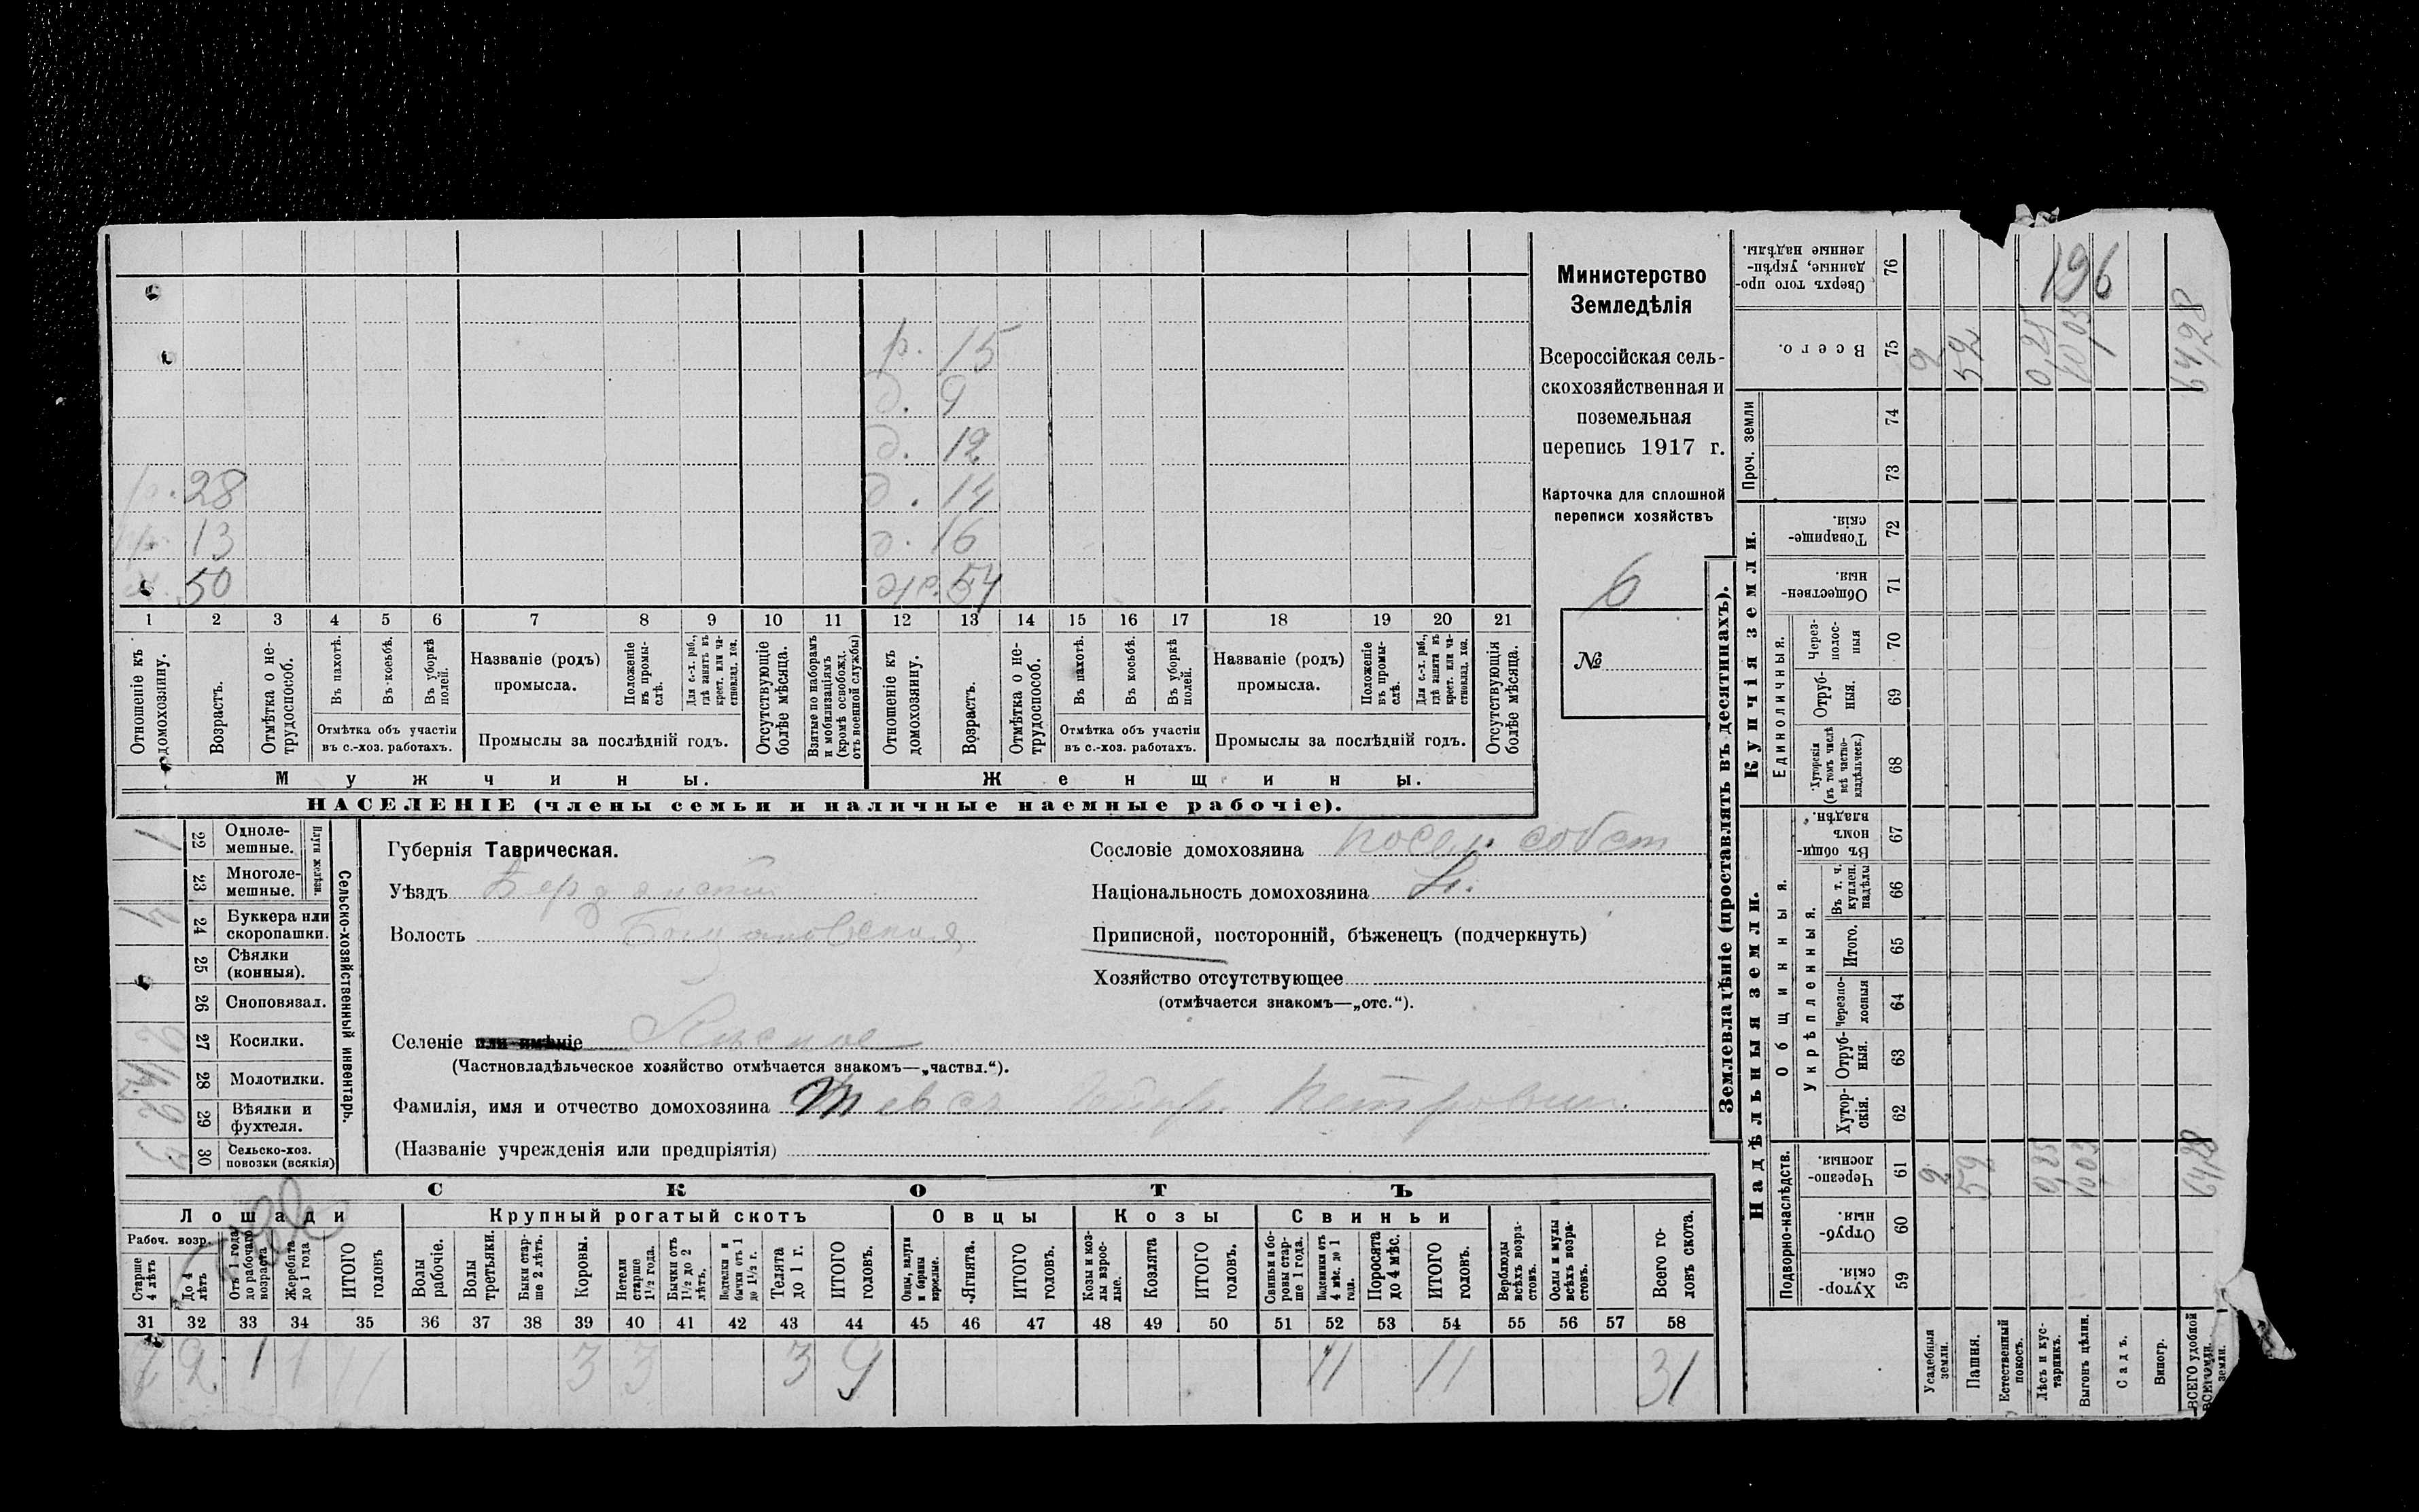 р. 15
д. 9
д. 12
р. 28 д. 14
13 д. 16
50 ж. 54
1 2 3 4 5 6 7 8 9 10 11 12 13 14 15 16 17 18 19 20 21
Отношеніе къ домохозяину.
Возрастъ.
Отмѣтка о нетрудоспособ.
Въ пахотѣ.
Въ косьбѣ.
Въ уборкѣ полей.
Отмѣтка объ участіи въ с.-хоз. работахъ.
Названіе (родъ) промысла.
Положеніе въ промыслѣ.
Для с.-х. раб., гдѣ занятъ въ крест. или частновлад. хоз.
Промыслы за послѣдній годъ.
Отсутствующіе болѣе мѣсяца.
Взятые по наборамъ и мобилизаціямъ (кромѣ освобожд. отъ военной службы)
Отношеніе къ домохозяину.
Возрастъ.
Отмѣтка о нетрудоспособ.
Въ пахотѣ.
Въ косьбѣ.
Въ уборкѣ полей.
Отмѣтка объ участіи въ с.-хоз. работахъ.
Названіе (родъ) промысла.
Положеніе въ промыслѣ.
Для с.-х. раб., гдѣ занята въ крест. или частновлад. хоз.
Промыслы за послѣдній годъ.
Отсутствующія болѣе мѣсяца.
Мужчины. Женщины.
НАСЕЛЕНІЕ (члены семьи и наличные наемные рабочіе).
Министерство
Земледѣлія
Всероссійская сель-
скохозяйственная и
поземельная
перепись 1917 г.
Карточка для сплошной
переписи хозяйствъ
6
№
Плуги желѣзн.
Сельско-хозяйственный инвентарь.
1 22 Одноле-
мешные.
23 Многоле-
мешные.
24 Буккера или
скоропашки.
25 Сѣялки
(конныя).
26 Сноповязал.
27 Косилки.
28 Молотилки.
29 Вѣялки и
фухтеля.
30 Сельско-хоз.
повозки (всякія)
Губернія Таврическая.
Уѣздъ Бердянскій
Волость
Селеніе или имѣніе
(Частновладѣльческое хозяйство отмѣчается знакомъ—„частвл.“).
Фамилія, имя и отчество домохозяина Тевсъ Петровичъ.
(Названіе учрежденія или предпріятія)
Сословіе домохозяина посел. собст
Національность домохозяина Н.
Приписной, посторонній, бѣженецъ (подчеркнуть)
Хозяйство отсутствующее
(отмѣчается знакомъ—„отс.“).
СКОТЪ
Лошади Крупный рогатый скотъ Овцы Козы Свиньи
Рабоч. возр.
Старше 4 лѣтъ
До 4 лѣтъ
Отъ 1 года до рабочаго возраста
Жеребята до 1 года
ИТОГО головъ
Волы рабочіе.
Волы третьяки.
Быки старше 2 лѣтъ.
Коровы.
Нетели старше 1½ года.
Бычки отъ 1½ до 2 лѣтъ.
Подтелки и бычки отъ 1 до 1½ г.
Телята до 1 г.
ИТОГО головъ.
Овцы, валухи и бараны взрослые.
Ягнята.
ИТОГО головъ.
Козы и козлы взрослые.
Козлята
ИТОГО головъ.
Свиньи и боровы старше 1 года.
Подсвинки отъ 4 мѣс. до 1 года.
Поросята до 4 мѣс.
ИТОГО головъ.
Верблюды всѣхъ возрастовъ.
Ослы и мулы всѣхъ возрастовъ.
Всего головъ скота.
31 32 33 34 35 36 37 38 39 40 41 42 43 44 45 46 47 48 49 50 51 52 53 54 55 56 57 58
7 2 1 1 11 3 3 3 9 11 11 31
Землевладѣніе (проставлять въ десятинахъ).
Надѣльныя земли. Купчія земли.
Подворно-наслѣдств.
Общинныя.
Укрѣпленныя.
Единоличныя.
Проч. земли
59 Хуторскія
60 Отрубныя.
61 Черезполосныя.
62 Хуторскія.
63 Отрубныя.
64 Черезполосныя
65 Итого.
66 Въ т. ч. куплен. надѣлы
67 Въ общинномъ владѣн.
68 Хуторскія (въ томъ числѣ всѣ частновладѣльческ.)
69 Отрубныя.
70 Черезполосныя
71 Общественныя.
72 Товарищескія.
73
74
75 Всего.
76 Сверхъ того проданные, укрѣпленные надѣлы.
196
Усадебныя земли. 2 2
Пашня. 52 52
Естественный покосъ.
Лѣсъ и кустарникъ. 0,25 0,25
Выгонъ цѣлин. 10,03 10,03
Садъ.
Виногр.
ВСЕГО удобной земли. 64,28 64,28